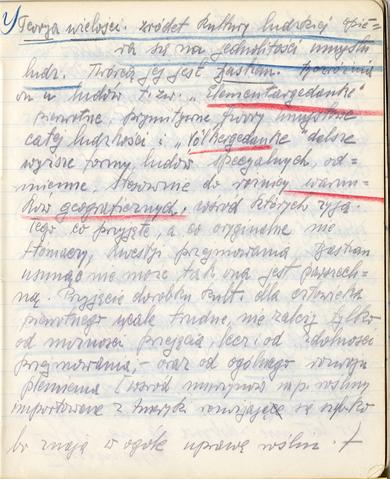 Teorja wielości źródeł kultury ludzkiej opie-
ra się na jednolitości umysłu
ludz. Twórcą jej jest Bastian.
on u ludów t. zw. „Elementargedanke"
pierwotne, prymitywne twory umysłowe
całej ludzkości i „Völkergedanke" dalsze
wyższe formy ludów specjalnych, od-
mienne. Stosownie do różnicy warun-
ków geograficznych, wśród których żyją.
Tego co przyjęte, a co oryginalne nie
tłomaczy, kwestji przejmowania Bastian
usunąć nie może tak ona jest powszech-
ną. Przyjęcie dorobku kult. dla człowieka
pierwotnego wcale trudne, nie zależy tylko
od możności przyjęcia, lecz i od zdolności
przejmowania, - oraz od ogólnego rozwoju
plemienia (wśród murzynów np. rośliny
importowane z Ameryki rozwijające się szybko
bo mają w ogóle uprawę roślin.